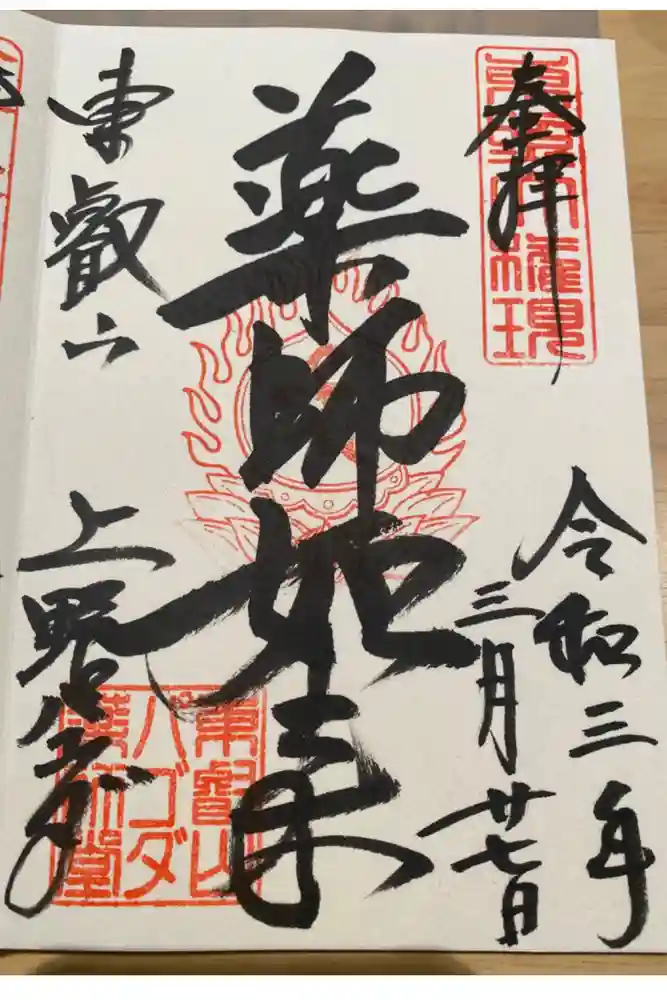 奉拝
東叡山権現
令和三年
三月廿七日
薬師如来
東叡山
上野公園
東叡山
パゴダ
薬師堂